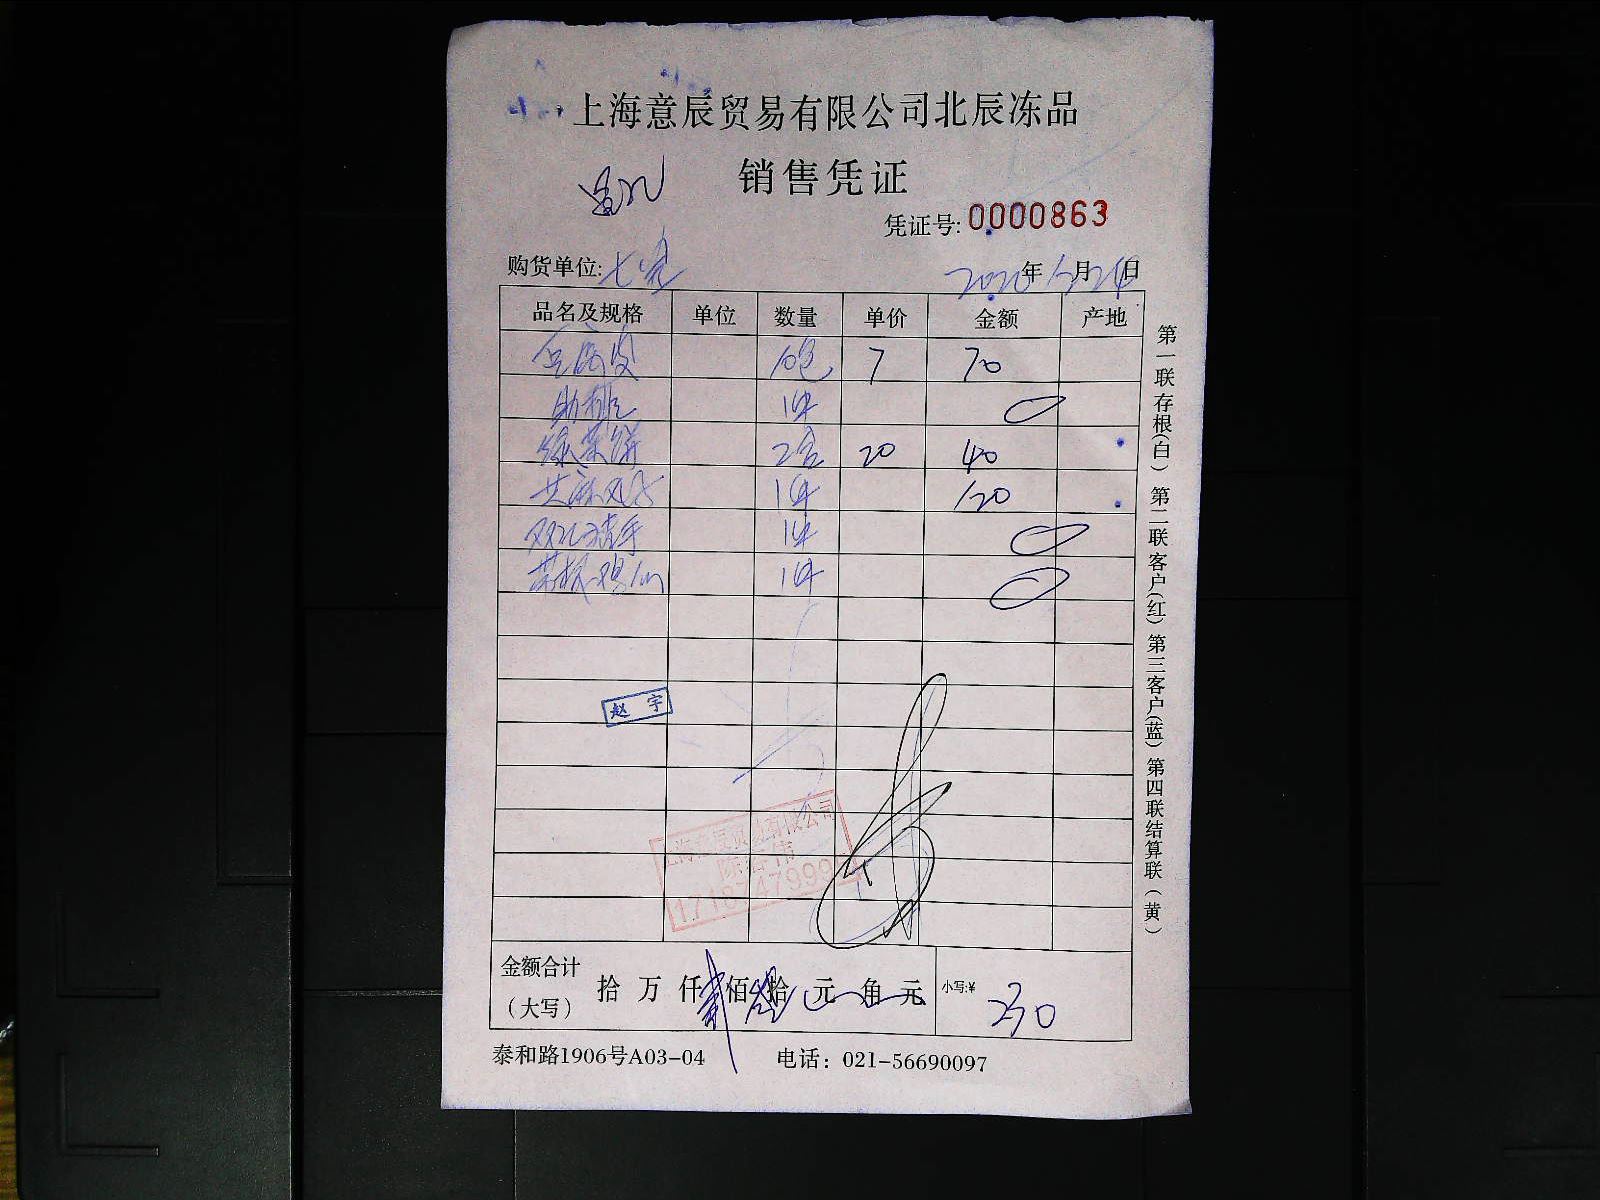 上海意辰贸易有限公司北辰冻品
销售凭证
凭证号: 0000863
购货单位: 2020年 月24日
品名及规格 单位 数量 单价 金额 产地
豆腐皮 10包 7 70
肋排 1件
绿茶饼 2盒 20 40
1件 120
1件
1件
赵宇
上海意辰贸易有限公司
金额合计（大写） 拾 万 仟 贰 佰 叁 拾 元 角 元 小写:¥ 230
泰和路1906号A03-04 电话：021-56690097
第一联存根(白) 第二联客户(红) 第三客户(蓝) 第四联结算联(黄)